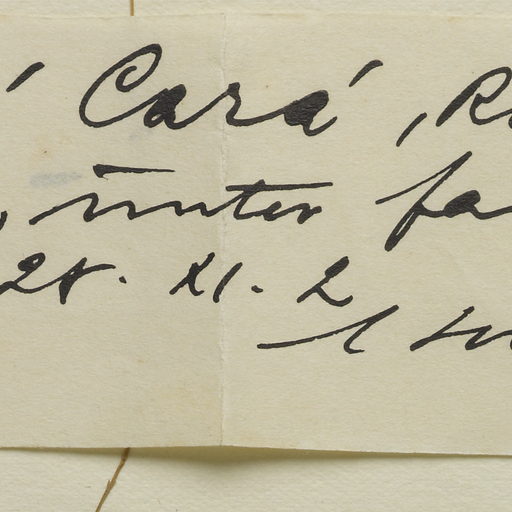 Cará, R
unter fa
28. XI. 2